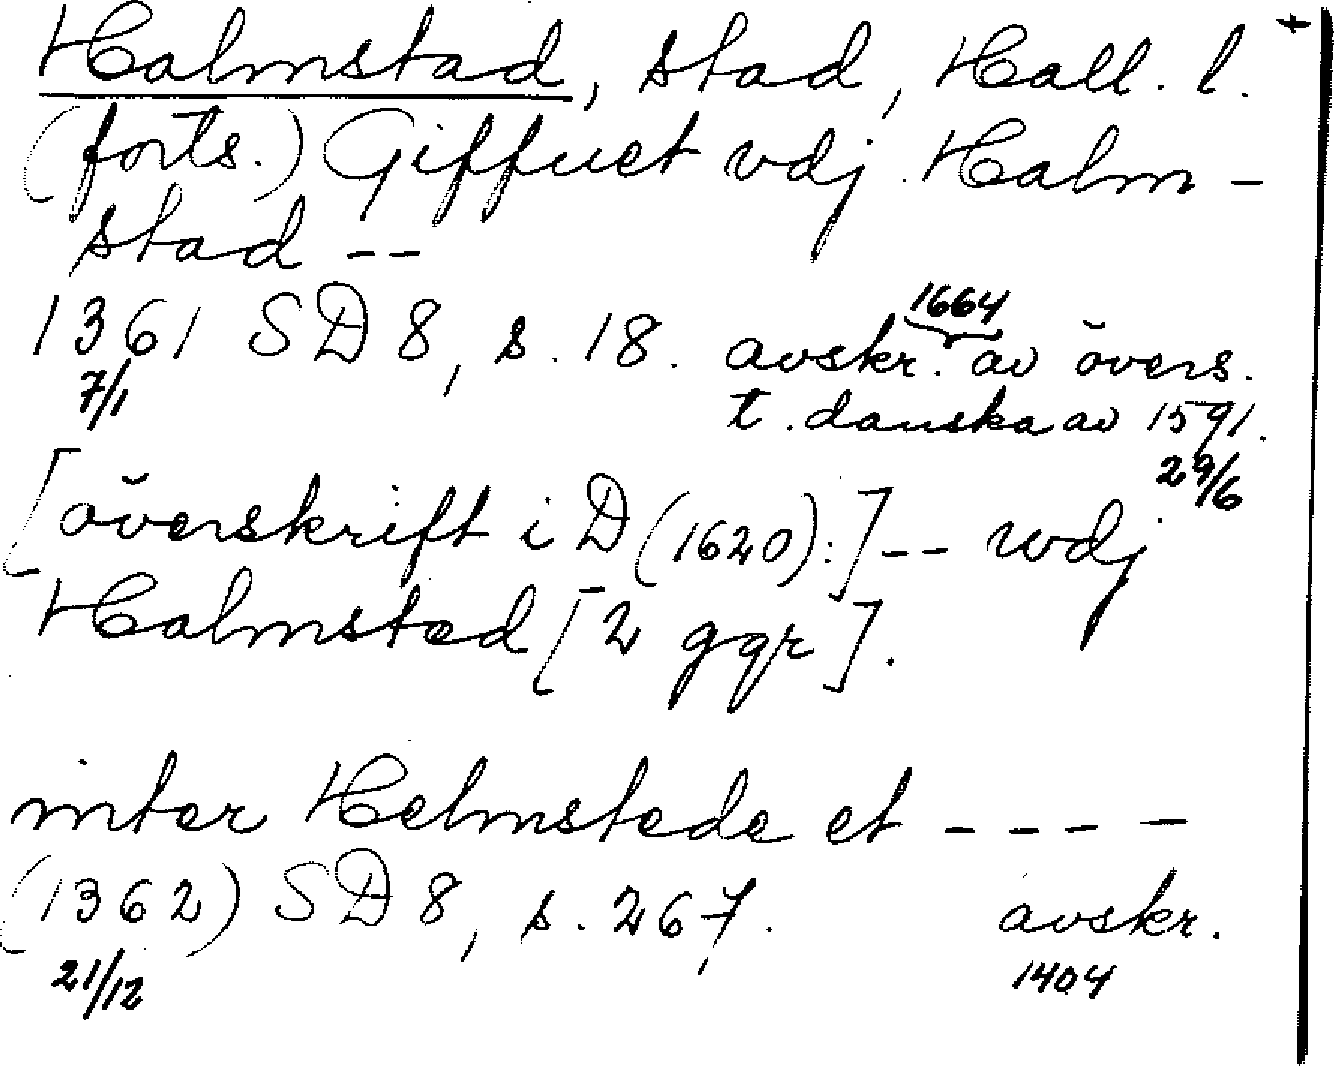 Halmstad, stad, Hall. l. +
(forts.) Giffuet vdj Halm-
stad --
1361 SD 8, s. 18. avskr. 1664 av övers.
7/1 t. danska av 1591.
29/6
[överskrift i D (1620):] -- wdj
Halmsted [2 ggr].
inter Helmstede et ----
(1362) SD 8, s. 267. avskr.
21/12 1404